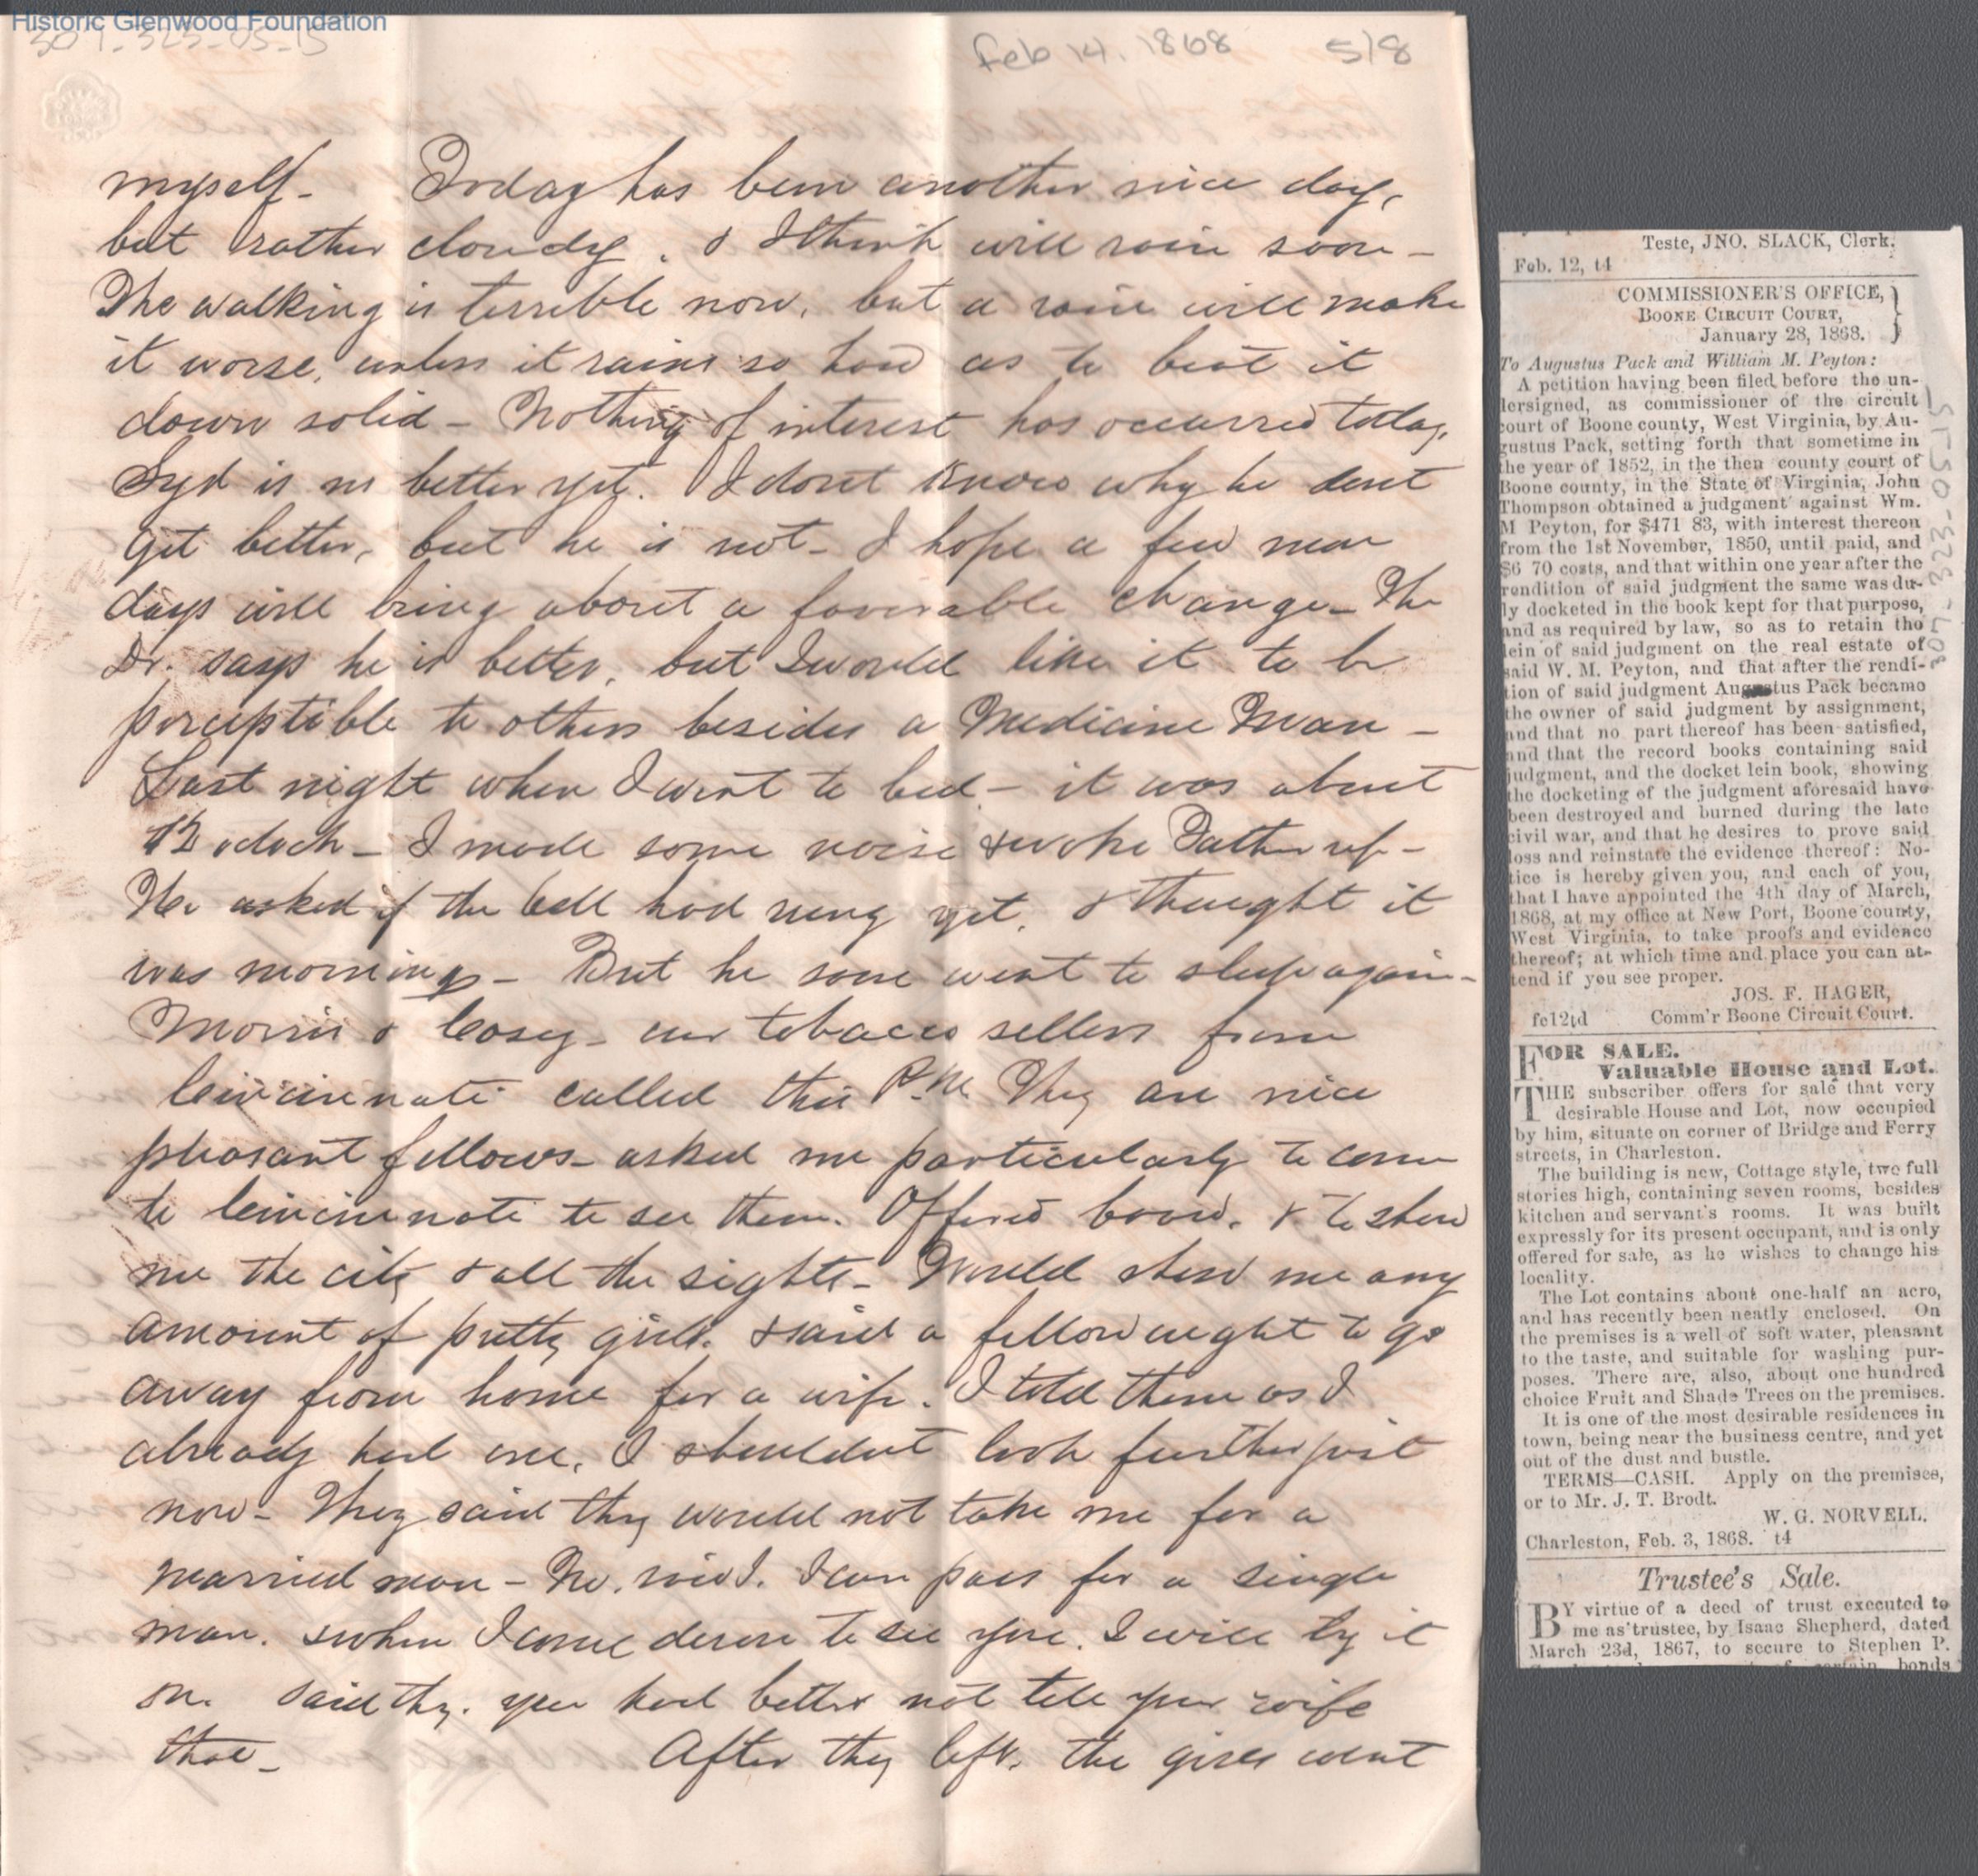 Historic Glenwood Foundation
307-323-05-15
Feb 14. 1868 5/8
myself - Today has been another nice day,
but rather cloudy. & I think will rain soon -
The walking is terrible now, but a rain will make
it worse, unless it rains so hard as to beat it
down solid - Nothing of interest has occurred today.
Syd is no better yet. I dont know why he dont
get better, but he is not - I hope a few more
days will bring about a favorable change - The
Dr. says he is better, but I would like it to be
perceptible to others besides a Medicine Man -
Last night when I went to bed - it was about
12 oclock - I made some noise & woke Father up -
He asked if the bell had rung yet, & thought it
was morning - But he soon went to sleep again -
Morris & Casey - our tobacco sellers from
Cincinnati called this P.M. They are nice
pleasant fellows - asked me particularly to come
to Cincinnati to see them. Offered board, & to show
me the city & all the sights - Would show me any
amount of pretty girls. & said a fellow ought to go
away from home for a wife. I told them as I
already had one, I shouldnt look further just
now - They said they would not take me for a
married man - No, said I. I can pass for a single
man. & when I come down to see you. I will try it
on. said they. you had better not tell your wife
that - After they left, the girls went
Teste, JNO. SLACK, Clerk.
Feb. 12, t4
COMMISSIONER'S OFFICE,
BOONE CIRCUIT COURT,
January 28, 1868.
To Augustus Pack and William M. Peyton:
A petition having been filed before the un-
dersigned, as commissioner of the circuit
court of Boone county, West Virginia, by Au-
gustus Pack, setting forth that sometime in
the year of 1852, in the then county court of
Boone county, in the State of Virginia, John
Thompson obtained a judgment against Wm.
M Peyton, for $471 83, with interest thereon
from the 1st November, 1850, until paid, and
$6 70 costs, and that within one year after the
rendition of said judgment the same was du-
ly docketed in the book kept for that purpose,
and as required by law, so as to retain the
lein of said judgment on the real estate of
said W. M. Peyton, and that after the rendi-
tion of said judgment Augustus Pack became
the owner of said judgment by assignment,
and that no part thereof has been satisfied,
and that the record books containing said
judgment, and the docket lein book, showing
the docketing of the judgment aforesaid have
been destroyed and burned during the late
civil war, and that he desires to prove said
loss and reinstate the evidence thereof: No-
tice is hereby given you, and each of you,
that I have appointed the 4th day of March,
1868, at my office at New Port, Boone county,
West Virginia, to take proofs and evidence
thereof; at which time and place you can at-
tend if you see proper.
JOS. F. HAGER,
fe12td Comm'r Boone Circuit Court.
307-323-05-15
FOR SALE.
Valuable House and Lot.
THE subscriber offers for sale that very
desirable House and Lot, now occupied
by him, situate on corner of Bridge and Ferry
streets, in Charleston.
The building is new, Cottage style, two full
stories high, containing seven rooms, besides
kitchen and servant's rooms. It was built
expressly for its present occupant, and is only
offered for sale, as he wishes to change his
locality.
The Lot contains about one-half an acre,
and has recently been neatly enclosed. On
the premises is a well of soft water, pleasant
to the taste, and suitable for washing pur-
poses. There are, also, about one hundred
choice Fruit and Shade Trees on the premises.
It is one of the most desirable residences in
town, being near the business centre, and yet
out of the dust and bustle.
TERMS—CASH. Apply on the premises,
or to Mr. J. T. Brodt.
W. G. NORVELL.
Charleston, Feb. 3, 1868. t4
Trustee's Sale.
BY virtue of a deed of trust executed to
me as trustee, by Isaac Shepherd, dated
March 23d, 1867, to secure to Stephen P.
certain bonds